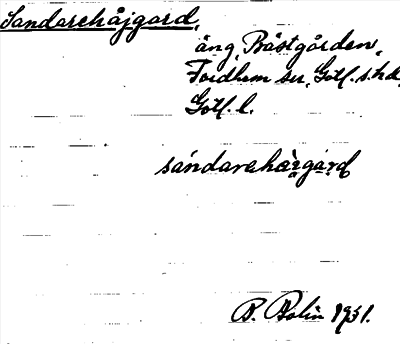 Sandarehåjgard,
äng, Bästgården,
Fardhem sn, Gotl. s. hd,
Gotl. l.
sándarehài̯gá̱rd
B. Bolin 1931.